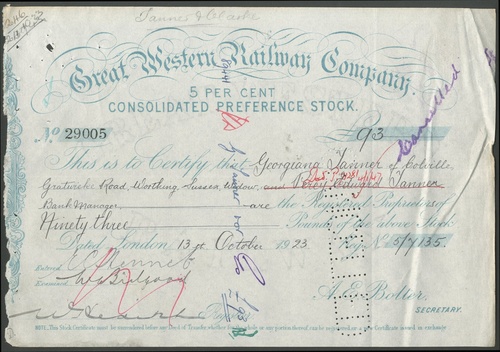 Tanner & Clarke
Great Western Railway Company.
5 PER CENT
CONSOLIDATED PREFERENCE STOCK.
No 29005 £93
Cancelled
This is to Certify that Georgiana Tanner of Colville,
Road, Worthing, Sussex, Widow, and Percy Edward Tanner
Bank Manager are the Registered Proprietors of
Ninety three Pounds of the above Stock
Dated London 13 October 1923 Reg. No 5/7135
Entered
Examined
A. E. Bolter,
SECRETARY.
NOTE: This Stock Certificate must be surrendered before any Deed of Transfer, whether for the whole or any portion thereof can be registered or a new Certificate issued in exchange